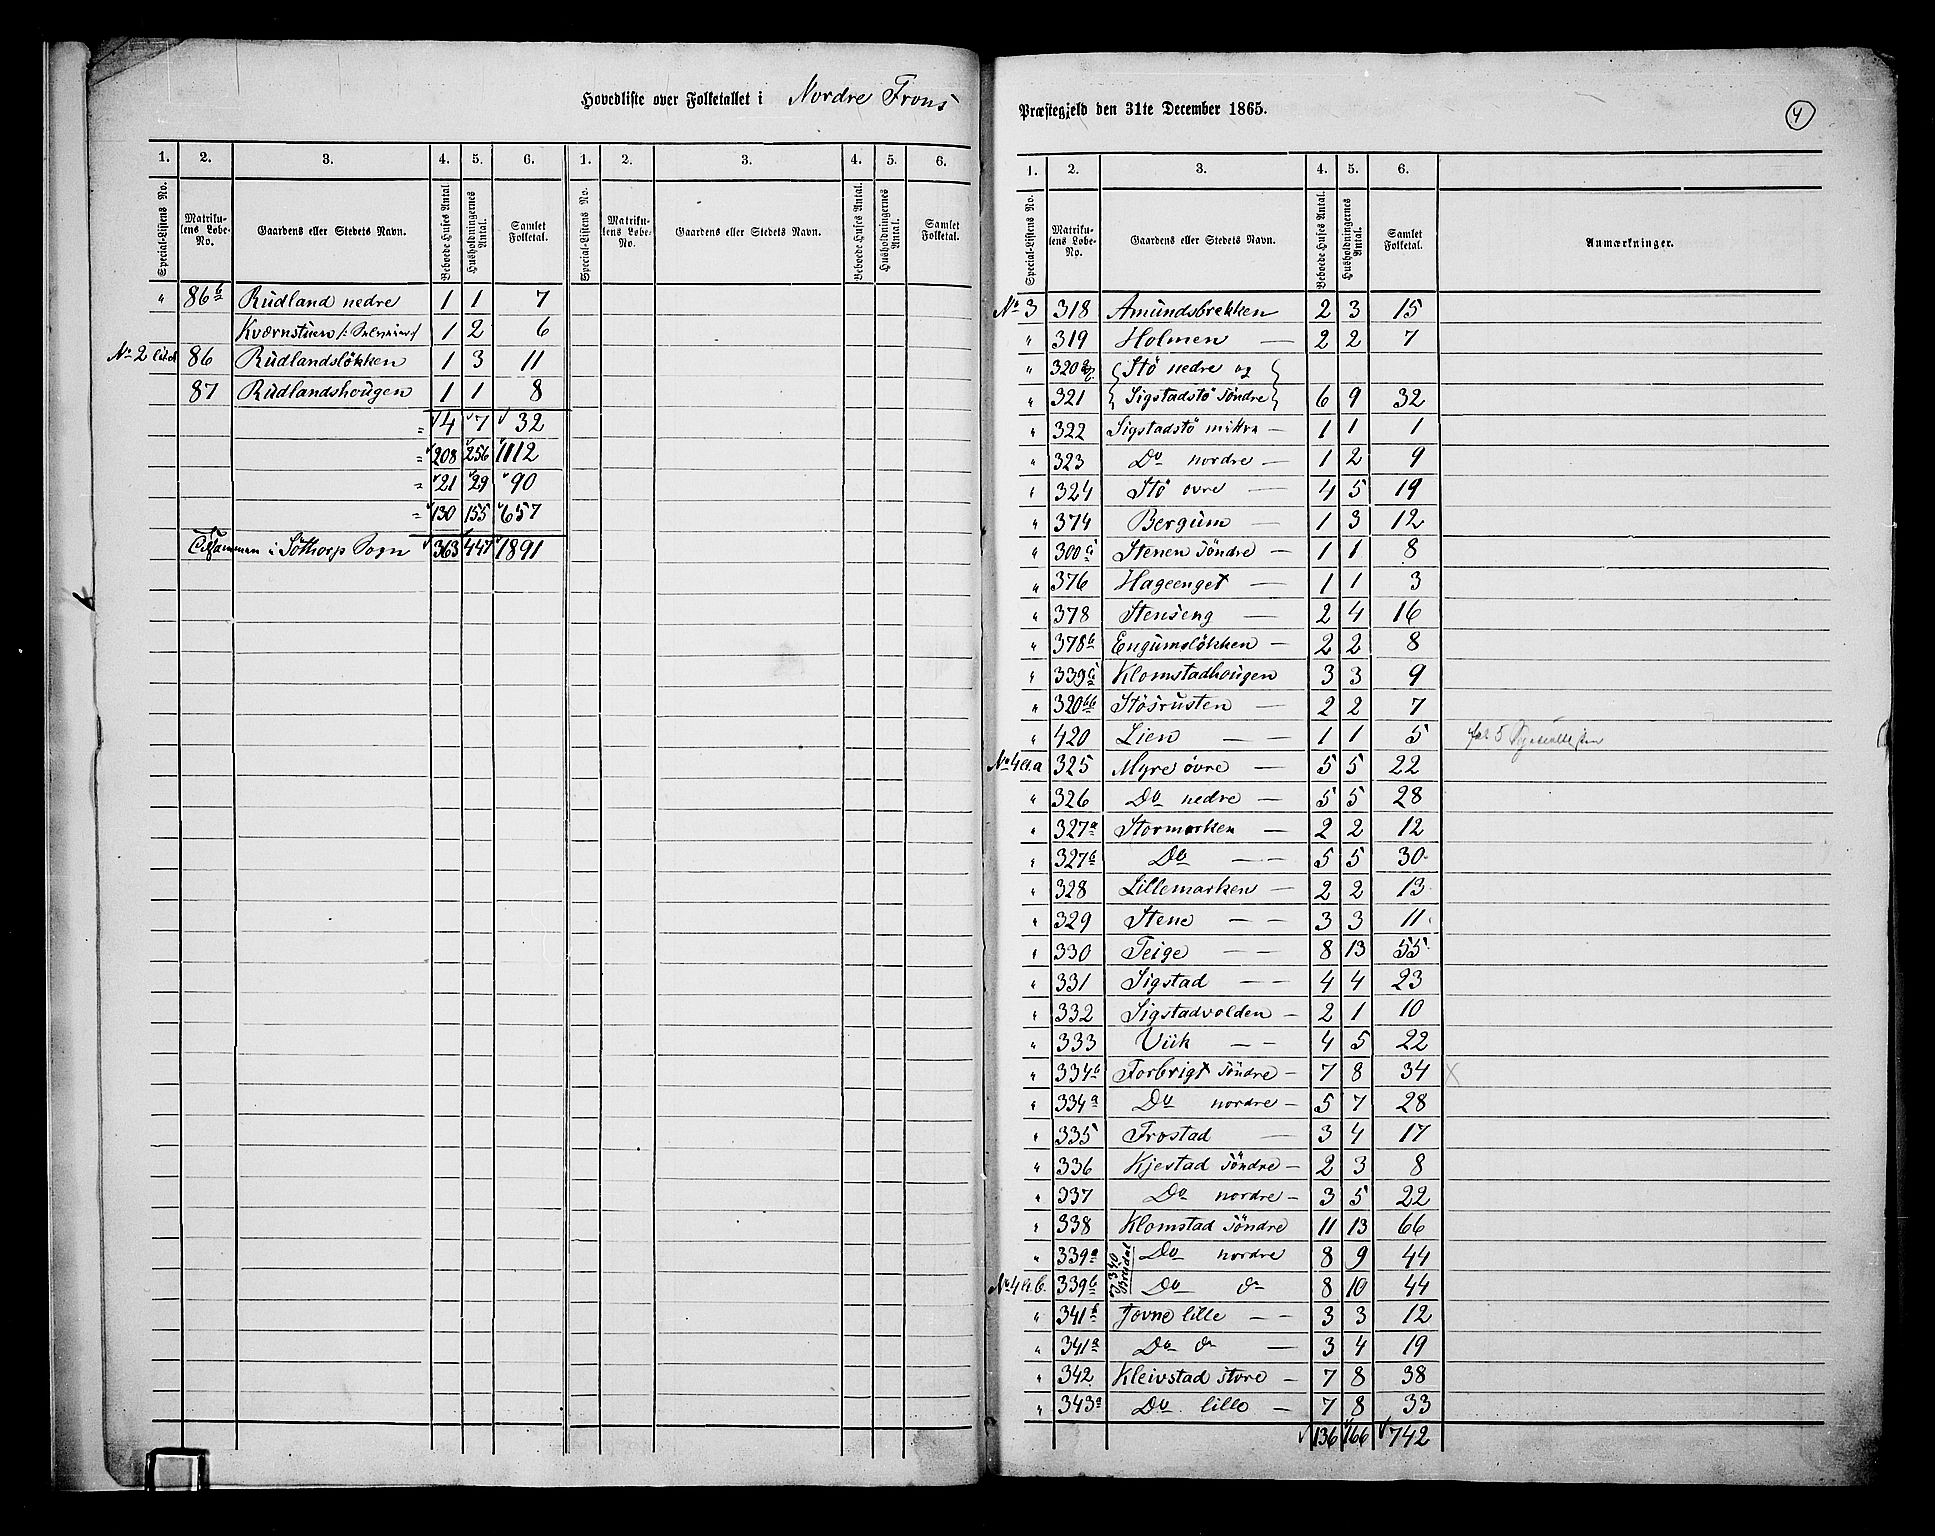 Hovedliste over Folketallet i Nordre Frons
1. 2. 3. 4. 5. 6. 1. 2. 3. 4. 5. 6.
Special-Listens No. Matrikulens Løbe-No. Gaardens eller Stedets Navn. Beboede Huses Antal. Husholdningernes Antal. Samlet Folketal. Special-Listens No. Matrikulens Løbe-No. Gaardens eller Stedets Navn. Beboede Huses Antal. Husholdningernes Antal. Samlet Folketal.
" 86b Rudland nedre 1 1 7
Kværnstuen 1 2 6
No 2 86 Rudlandsløkken 1 3 11
87 Rudlandshougen 1 1 8
= 4 7 32
= 208 256 1112
= 21 29 90
= 130 155 657
Tilsammen i Sothorp Sogn 363 447 1891
Præstegjeld den 31te December 1865.
4
1. 2. 3. 4. 5. 6.
Special-Listens No. Matrikulens Løbe-No. Gaardens eller Stedets Navn. Beboede Huses Antal. Husholdningernes Antal. Samlet Folketal. Anmærkninger.
No 3 318 Amundsbrekken 2 3 15
" 319 Holmen — 2 2 7
" 320 Stö nedre og
" 321 Sigstadstö Söndre 6 9 32
" 322 Sigstadstö mittra — 1 1 1
" 323 Do nordre — 1 2 9
" 324 Stö ovre — 4 5 19
" 374 Bergum — 1 3 12
" 300 Stenen Söndre — 1 1 8
" 376 Hageenget — 1 1 3
" 378 Stenseng — 2 4 16
" 378b Engumslökken — 2 2 8
" 339 Klomstadhougen 3 3 9
" 320bb Stösrusten — 2 2 7
" 420 Lien — — 1 1 5
No 4 a.a 325 Myre övre — 5 5 22
" 326 Do nedre — 5 5 28
" 327a Stormorken — 2 2 12
" 327b Do — — 5 5 30
" 328 Lillemorken — 2 2 13
" 329 Stene — — 3 3 11
" 330 Teige — — 8 13 55
" 331 Sigstad — — 4 4 23
" 332 Sigstadvolden — 2 1 10
" 333 Viik — — 4 5 22
" 334b Forbrigt Söndre — 7 8 34 x
" 334a Do nordre — 5 7 28
" 335 Frostad — 3 4 17
" 336 Kjestad Söndre — 2 3 8
" 337 Do nordre — 3 5 22
" 338 Klomstad Söndre 11 13 66
" 339a Do nordre 8 9 44
No 4 a.b. 339b 340 Breidal Do do 8 10 44
" 341b Tovne lille — — 3 3 12
" 341a Do do — 3 4 19
" 342 Kleivstad store — 7 8 38
" 343a Do lille — 7 8 33
136 166 742